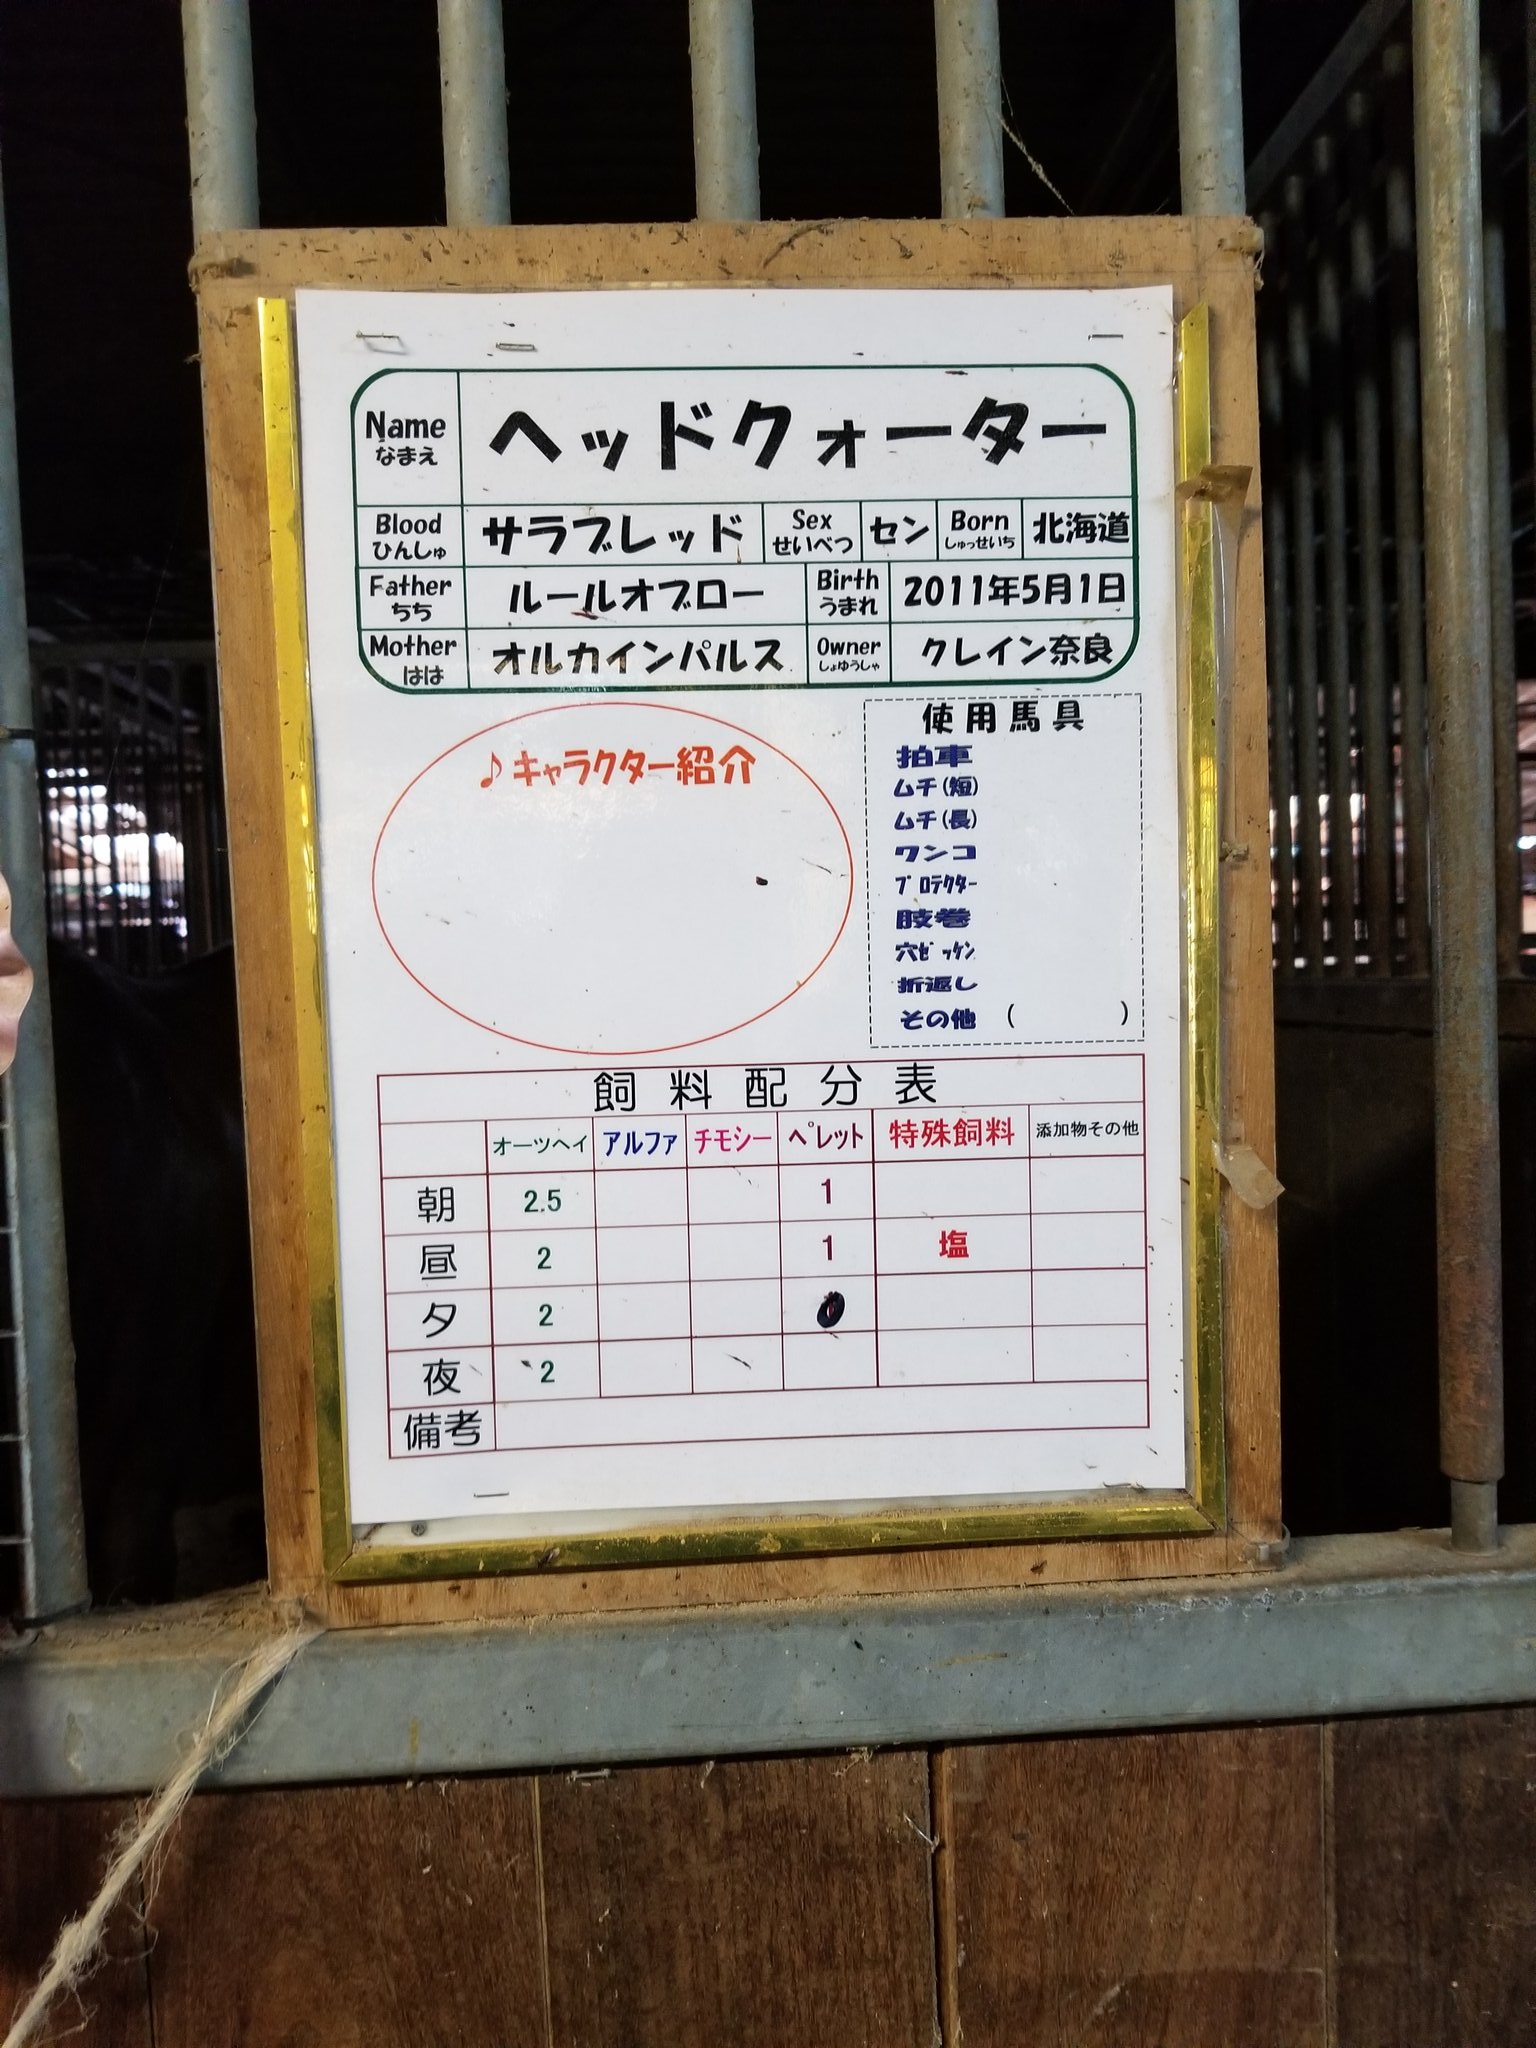 Name
なまえ
ヘッドクォーター
Blood
ひんしゅ
サラブレッド
Sex
せいべつ
セン
Born
しゅっせいち
北海道
Father
ちち
ルールオブロー
Birth
うまれ
2011年5月1日
Mother
はは
オルカインパルス
Owner
しょゆうしゃ
クレイン奈良
♪キャラクター紹介
使用馬具
拍車
ムチ(短)
ムチ(長)
ワンコ
プロテクター
肢巻
穴ゼッケン
折返し
その他 ( )
飼料配分表
オーツヘイ アルファ チモシー ペレット 特殊飼料 添加物その他
朝 2.5 1
昼 2 1 塩
夕 2 0
夜 2
備考